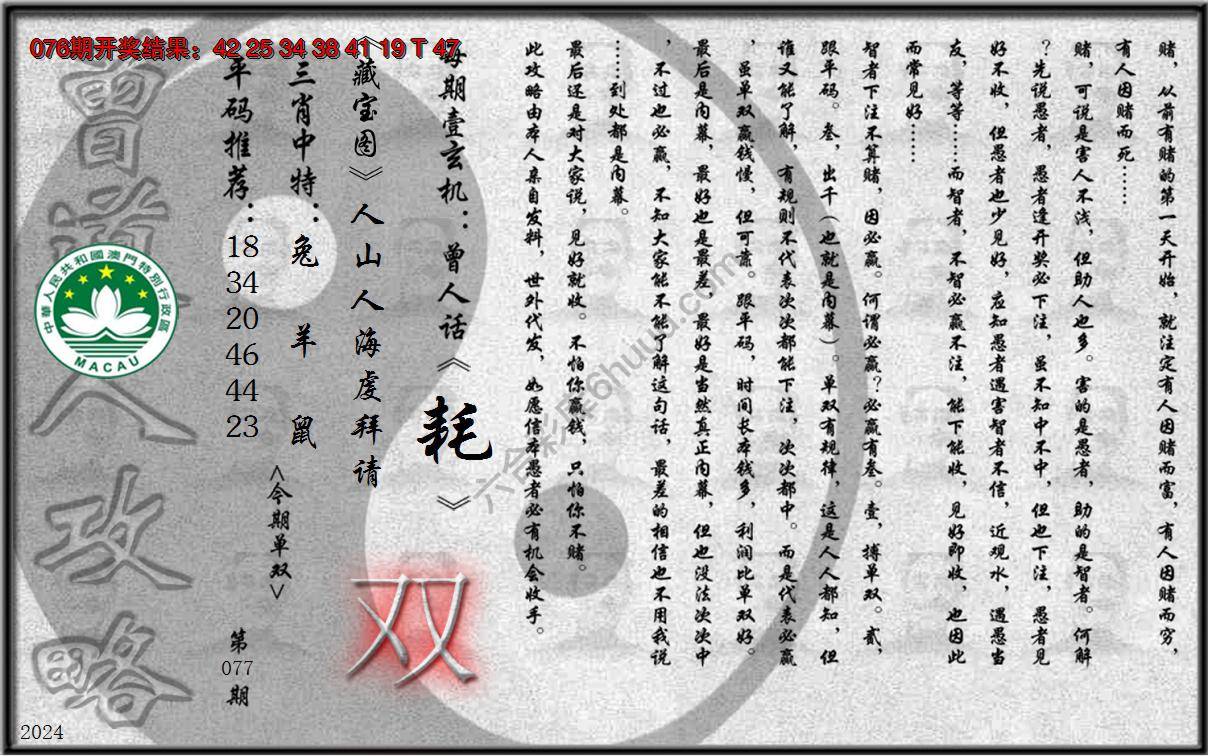 076期开奖结果：42 25 34 38 41 19 T 47
赌，从前有赌的第一天开始，就注定有人因赌而富，有人因赌而穷，
有人因赌而死……
赌，可说是害人不浅，但助人也多。害的是愚者，助的是智者。何解
？先说愚者，愚者逢开奖必下注，虽不知中不中，但也下注，愚者见
好不收，但愚者也少见好，应知愚者遇害智者不信，近观水，遇愚当
友，等等……而智者，不智必赢不注，能下能收，见好即收，也因此
而常见好……
智者下注不算赌，因必赢。何谓必赢？必赢有叁。壹，搏单双。贰，
跟平码。叁，出千（也就是内幕）。单双有规律，这是人人都知，但
谁又能了解，有规则不代表次次都能下注，次次都中。而是代表必赢
，虽单双赢钱慢，但可靠。跟平码，时间长本钱多，利润比单双好。
最后是内幕，最好也是最差，最好是当然真正内幕，但也没法次次中
，不过也必赢，不知大家能不能了解这句话，最差的相信也不用我说
……到处都是内幕。
最后还是对大家说，见好就收。不怕你赢钱，只怕你不赌。
此攻略由本人亲自发料，世外代发，如愿信本愚者必有机会收手。
每期壹玄机：曾人话《耗》
《藏宝图》人山人海虔拜请
双
三肖中特：兔 羊 鼠
<今期单双>
平码推荐：
18
34
20
46
44
23
第
077
期
曾道人攻略
中華人民共和國澳門特別行政區
MACAU
2024